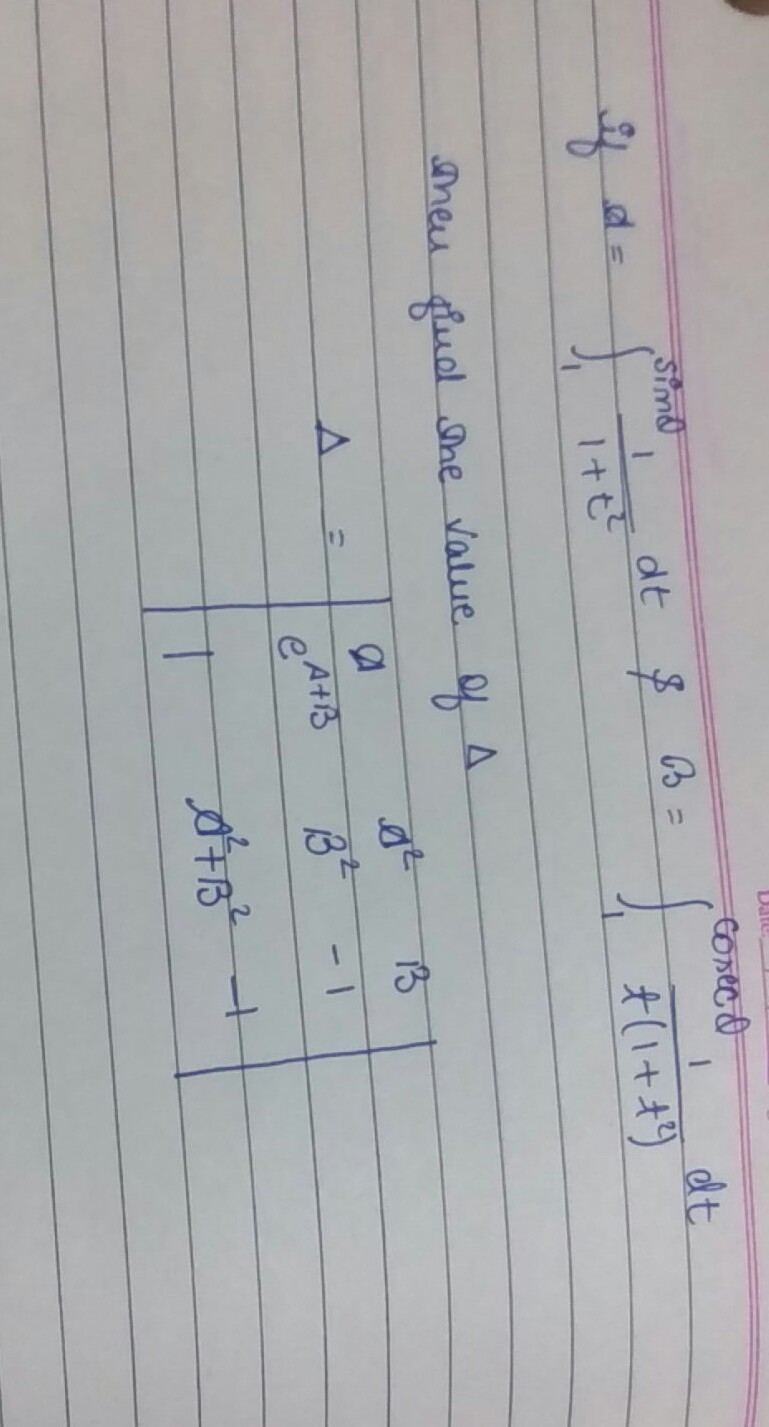 If A = ∫₁^sinθ 1/(1+t²) dt & B = ∫₁^cosecθ 1/(t(1+t²)) dt
then find the value of Δ
Δ = | A A² B |
| e^(A+B) B² -1 |
| 1 A²+B² -1 |